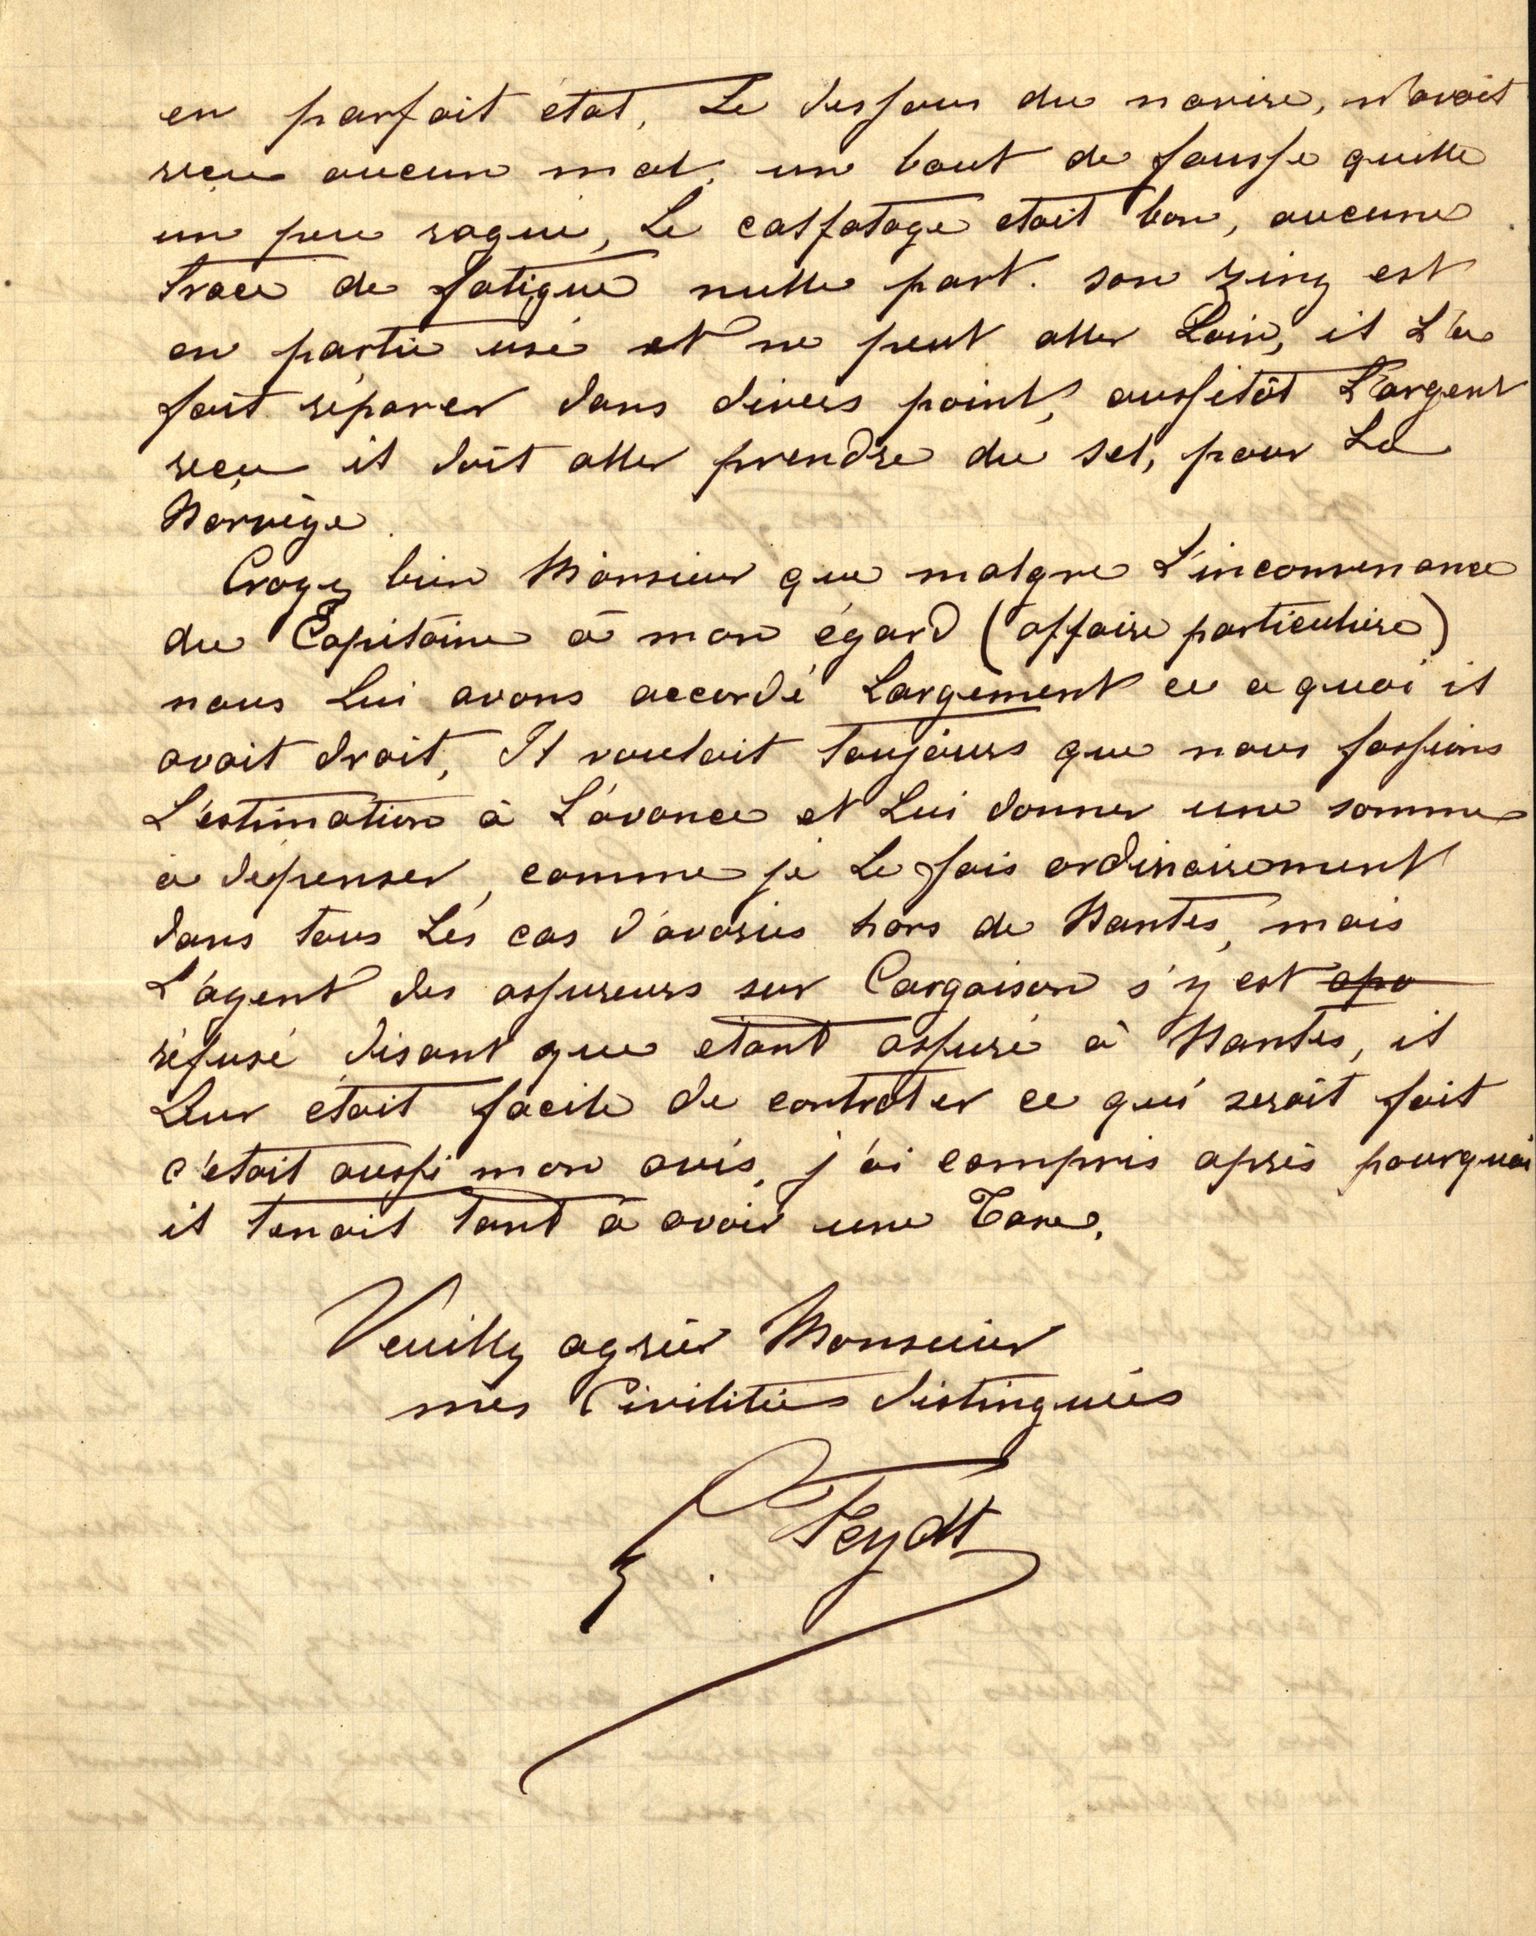 en parfait état, Le dessous du navire, n'avait
reçu aucun mal, un bout de fausse quille
un peu ragué, Le calfatage etait bon, aucune
trace de fatigue nulle part. son zing est
en partie usé et ne peut aller Loin, il L'a
fait réparer dans divers point, aussitôt L'argent
reçu il doit aller prendre du sel, pour La
Norvège.
Croyez bien Monsieur que malgre L'inconvenance
du Capitaine à mon égard (affaire particulière)
nous Lui avons accordé Largement ce a quoi il
avait droit, Il voulait toujours que nous fassions
L'estimation à L'avance et Lui donner une somme
a dépenser, comme je Le fais ordinairement
dans tous Les cas d'avaries hors de Nantes, mais
L'agent des assureurs sur Cargaison s'y est opo
réfusé disant que etant assuré à Nantes, il
Leur était facile de controler ce qui serait fait
c'était aussi mon avis, j'ai compris après pourquoi
il tenait tant à avoir une Taxe.
Veuillez agréer Monsieur
mes Civilités distinguées
Feydt